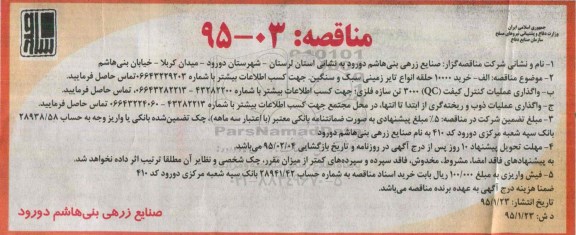 جمهوری اسلامی ایران
وزارت دفاع و پشتیبانی نیروهای مسلح
سازمان صنایع دفاع
مناقصه: ۰۳-۹۵
۱- نام و نشانی شرکت مناقصه‌گزار: صنایع زرهی بنی‌هاشم دورود به نشانی استان لرستان - شهرستان دورود - میدان کربلا - خیابان بنی‌هاشم
۲- موضوع مناقصه: الف- خرید ۱۰۰۰۰ حلقه انواع تایر زمینی سبک و سنگین. جهت کسب اطلاعات بیشتر با شماره ۰۶۶۴۳۲۲۹۲۰۳ تماس حاصل فرمایید.
ب- واگذاری عملیات کنترل کیفیت (QC) ۳۰۰۰ تن سازه فلزی؛ جهت کسب اطلاعات بیشتر با شماره ۴۳۲۸۲۲۰۰ - ۴۳۲۸۲۲۱۳ تماس حاصل فرمایید.
ج- واگذاری عملیات ذوب و ریخته‌گری از ابتدا تا انتها، در محل مجتمع جهت کسب اطلاعات بیشتر با شماره ۴۳۲۸۲۲۱۳ - ۰۶۶۴۳۲۲۴۰۶۰ تماس حاصل فرمایید.
۳- مبلغ تضمین شرکت در مناقصه: ۵٪ مبلغ پیشنهادی به صورت ضمانتنامه بانکی معتبر (با اعتبار سه ماهه)، چک تضمین‌شده بانکی یا واریز وجه به حساب ۲۸۹۳۸/۵۸
بانک سپه شعبه مرکزی دورود کد ۴۱۰ به نام صنایع زرهی بنی‌هاشم دورود
۴- مهلت تحویل پیشنهاد ۱۰ روز پس از درج آگهی در روزنامه و تاریخ بازگشایی ۹۵/۰۲/۰۴ می‌باشد.
به پیشنهادهای فاقد امضا، مشروط، مخدوش، فاقد سپرده و سپرده‌های کمتر از میزان مقرر، چک شخصی و نظایر آن مطلقا ترتیب اثر داده نخواهد شد.
۵- فیش واریزی به مبلغ ۱۰۰/۰۰۰ ریال بابت خرید اسناد مناقصه به شماره حساب ۲۸۹۴۱/۴۲ بانک سپه شعبه مرکزی دورود کد ۴۱۰
ضمنا هزینه درج آگهی به عهده برنده مناقصه می‌باشد.
تاریخ انتشار: ۹۵/۱/۲۳
د ش: ۹۵/۱/۲۳
صنایع زرهی بنی‌هاشم دورود